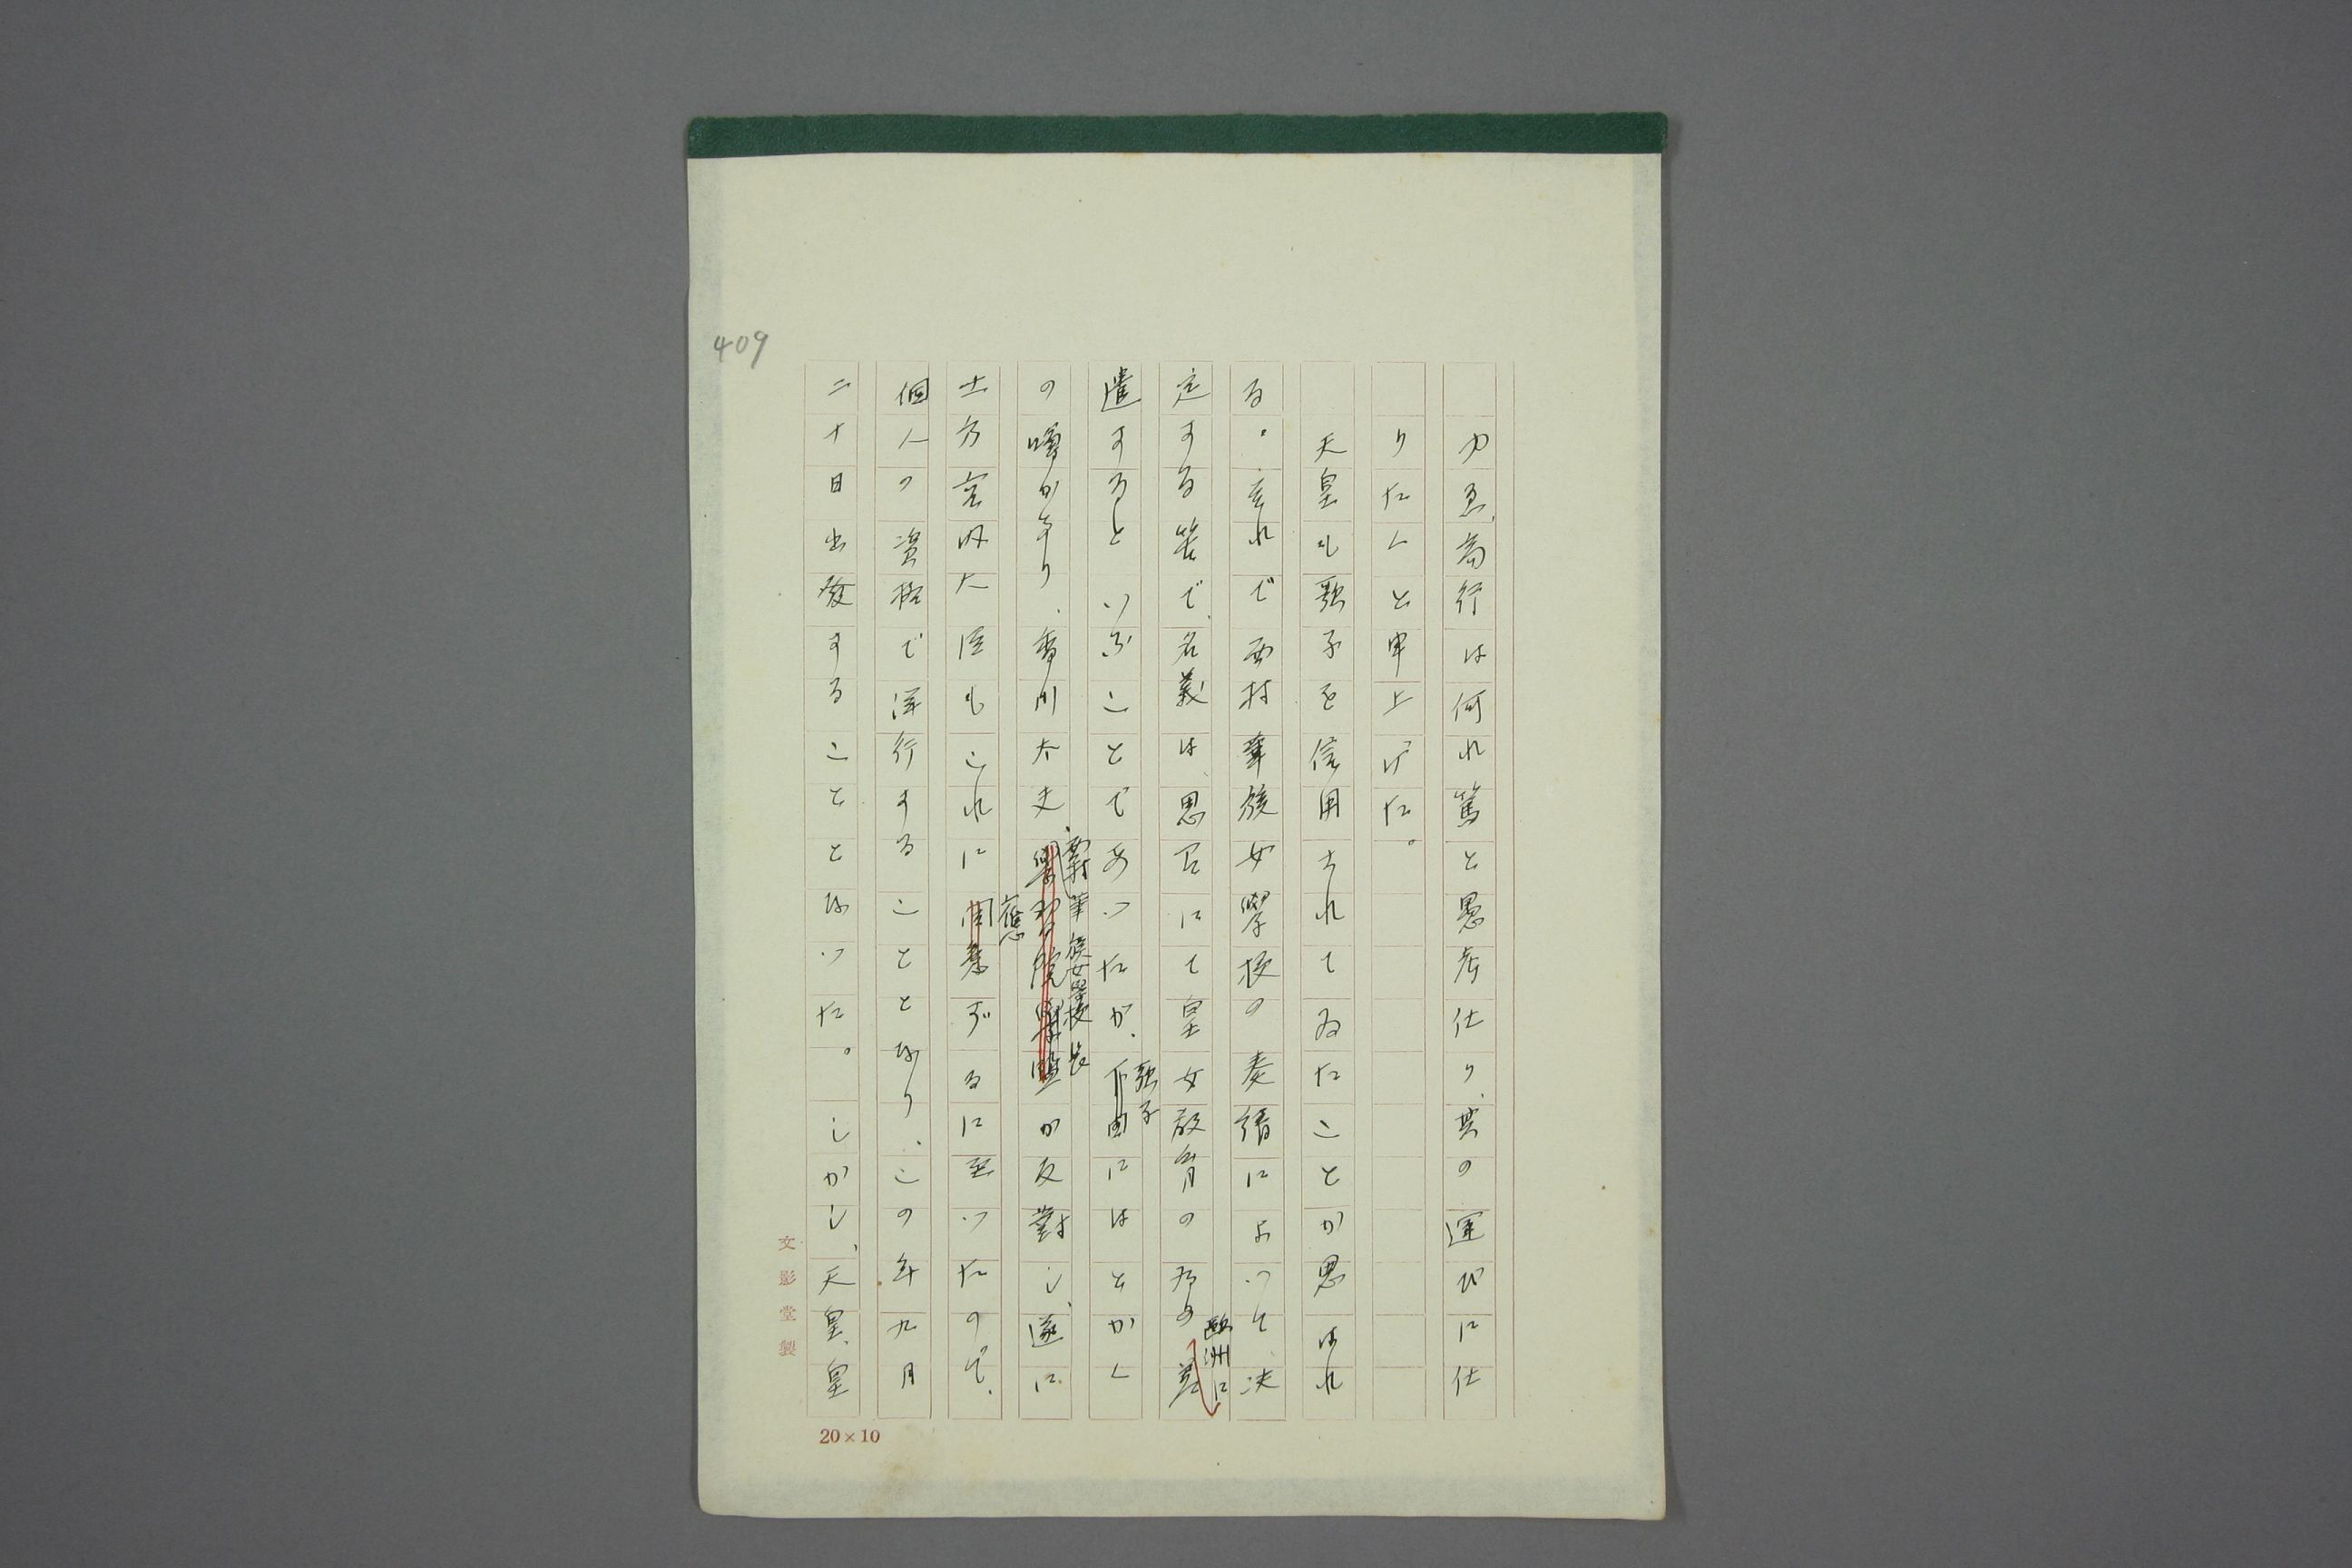 ゆゑ、高行は何れ篤と愚考仕り、其の運びに仕
りたくと申上げた。
天皇も歌子を信用されてゐたことが思はれ
る。それで西村華族女學校の奏請によつて、決
歐洲に
定する筈で、名義は思召にて皇女教育の為め差
歌子
遣するといふことであつたが、下田にはとかく
西村華族女學校長
の噂があり、香川大夫、學習院學監が反對し、遂に
應
土方宮内大臣もこれに同意ずるに至つたので、
個人の資格で洋行することとなり、この年九月
二十日出發することとなつた。しかし、天皇、皇
409
文影堂製
20×10